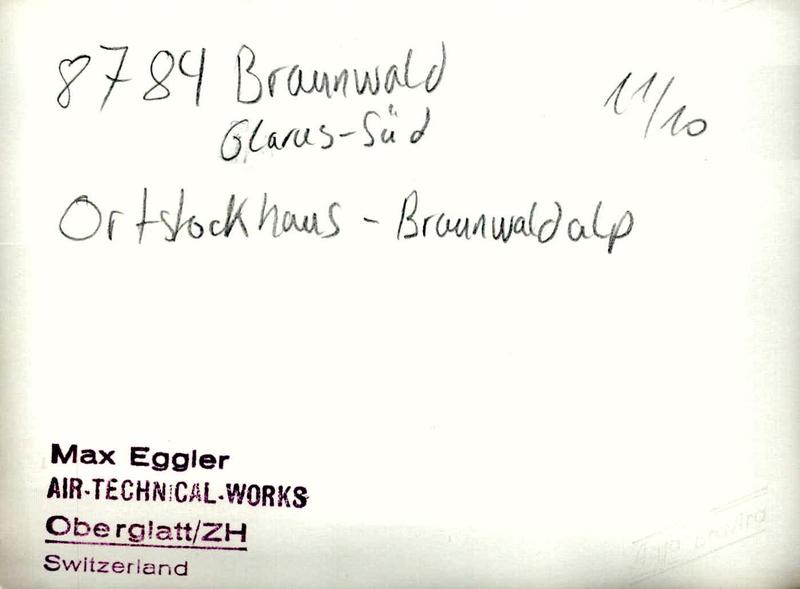 8784 Braunwald
Glarus-Süd
11/10
Ortstockhaus - Braunwaldalp
Max Eggler
AIR-TECHNICAL-WORKS
Oberglatt/ZH
Switzerland